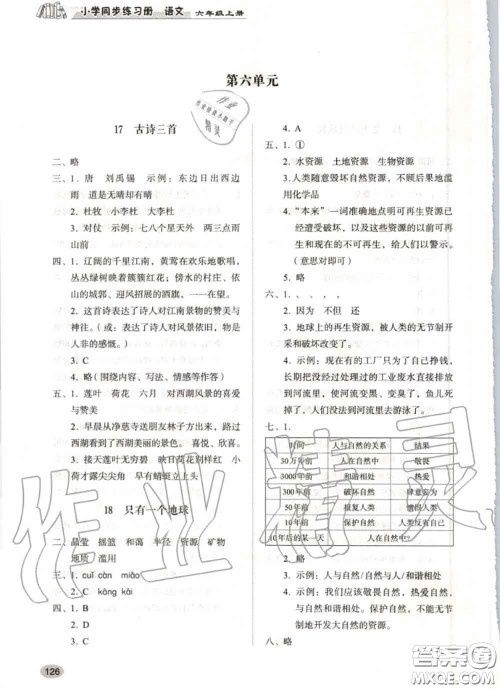 小学同步练习册 语文 六年级上册
第六单元
17 古诗三首
二、略
三、1. 唐 刘禹锡 示例：东边日出西边
雨 道是无晴却有晴
2. 杜牧 小李杜 大李杜
3. 对仗 示例：七八个星天外 两三点雨
山前
四、1. 辽阔的千里江南，黄莺在欢乐地歌唱，
丛丛绿树映着簇簇红花；傍水的村庄、依
山的城郭、迎风招展的酒旗，一一在望。
2. 这首诗表达了诗人对江南景物的赞美与
神往。（或：表达了诗人对风景依旧，物是
人非的感慨。）
3. C
4. 略（围绕内容、写法、情感等作答）
五、1. 莲叶 荷花 六月 对西湖风景的喜爱
与赞美
2. 早晨从净慈寺送朋友林子方出来，路过
西湖看到了西湖美丽的景色。喜悦、兴奋
3. 接天莲叶无穷碧，映日荷花别样红 小
荷才露尖尖角 早有蜻蜓立上头
18 只有一个地球
二、晶莹 摇篮 和蔼 半径 资源 矿物
地质 滥用
三、1. cuǐ càn miǎo
2. C kāng kǎi
四、1. B
2. D
3. C
4. A
五、1. ①
2. 水资源 土地资源 生物资源
3. 人类随意毁坏自然资源，不顾后果地滥
用化学品
4. “本来”一词准确地点明可再生资源已
经遭受破坏，以及这些资源以前可以再
生和现在的不可再生，给人们以警示。
（意思对即可）
5. 略
六、1.
2. 因为 不但 还
3. 地球上的再生资源，被人类的无节制开
采和破坏改变了。
4. 示例：现在的工厂只为了自己挣钱，
长期把没经过处理过的工业废水直接排到
河流里，使河流变黑、变臭了，鱼儿死掉
了，人们没法到河流里去游泳了。
七、1.
时间 人与自然的关系 结果
30万年前 人在自然中 敬畏
3000年前 和谐相处 热爱
300年前 破坏自然
50年前 报复人类
10年前 保护自然 人类反省自己
10年后的某一天 人在自然中
2. 略
3. 示例：人与自然/自然与人/和谐相处
4. 示例：我们应该敬畏自然，热爱自然，
与自然和谐相处。保护自然，不能无节
制地开发大自然的资源。
八、略
126
作业精灵